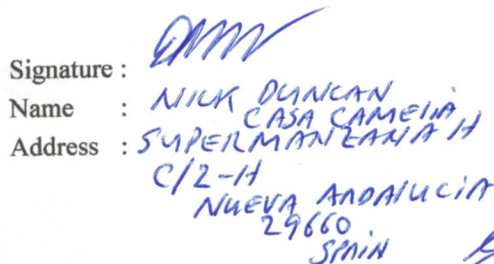 Signature :
Name : NICK DUNCAN
CASA CAMELIA
Address : SUPERMANZANA H
C/2-H
NUEVA ANDALUCIA
29660
SPAIN